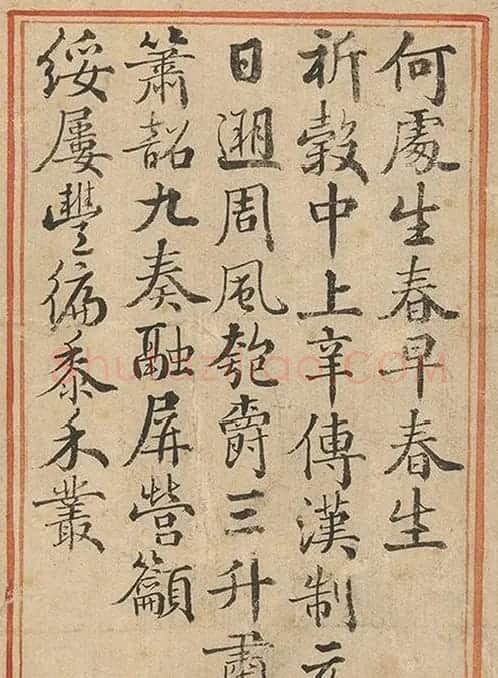 何處生春早春生
祈穀中上辛傳漢制元
日遡周風匏爵三升肅
簫韶九奏融屏營籲
綏屢豐徧黍禾叢